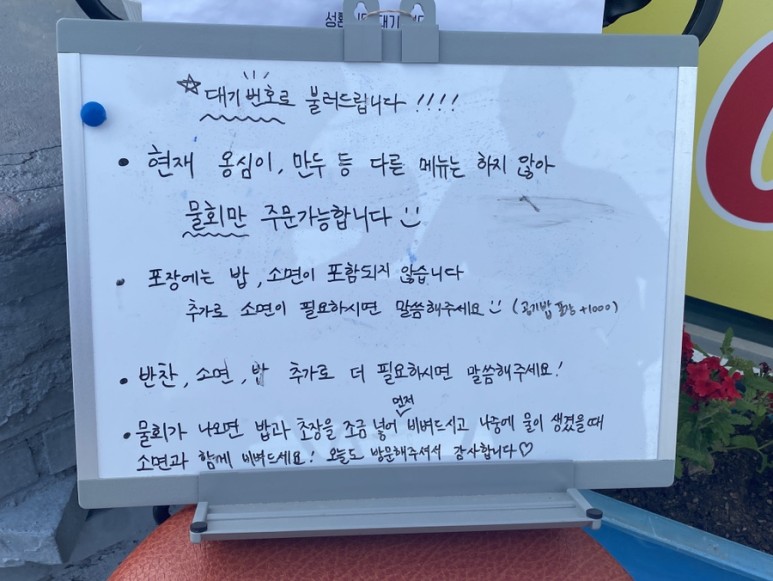 ☆ 대기번호로 불러드립니다 !!!!
• 현재 옹심이, 만두 등 다른 메뉴는 하지 않아
물회만 주문가능합니다
• 포장에는 밥, 소면이 포함되지 않습니다
추가로 소면이 필요하시면 말씀해주세요 (공기밥 +1000)
• 반찬, 소면, 밥 추가로 더 필요하시면 말씀해주세요!
먼저
• 물회가 나오면 밥과 초장을 조금 넣어 비벼드시고 나중에 물이 생겼을때
소면과 함께 비벼드세요! 오늘도 방문해주셔서 감사합니다♡